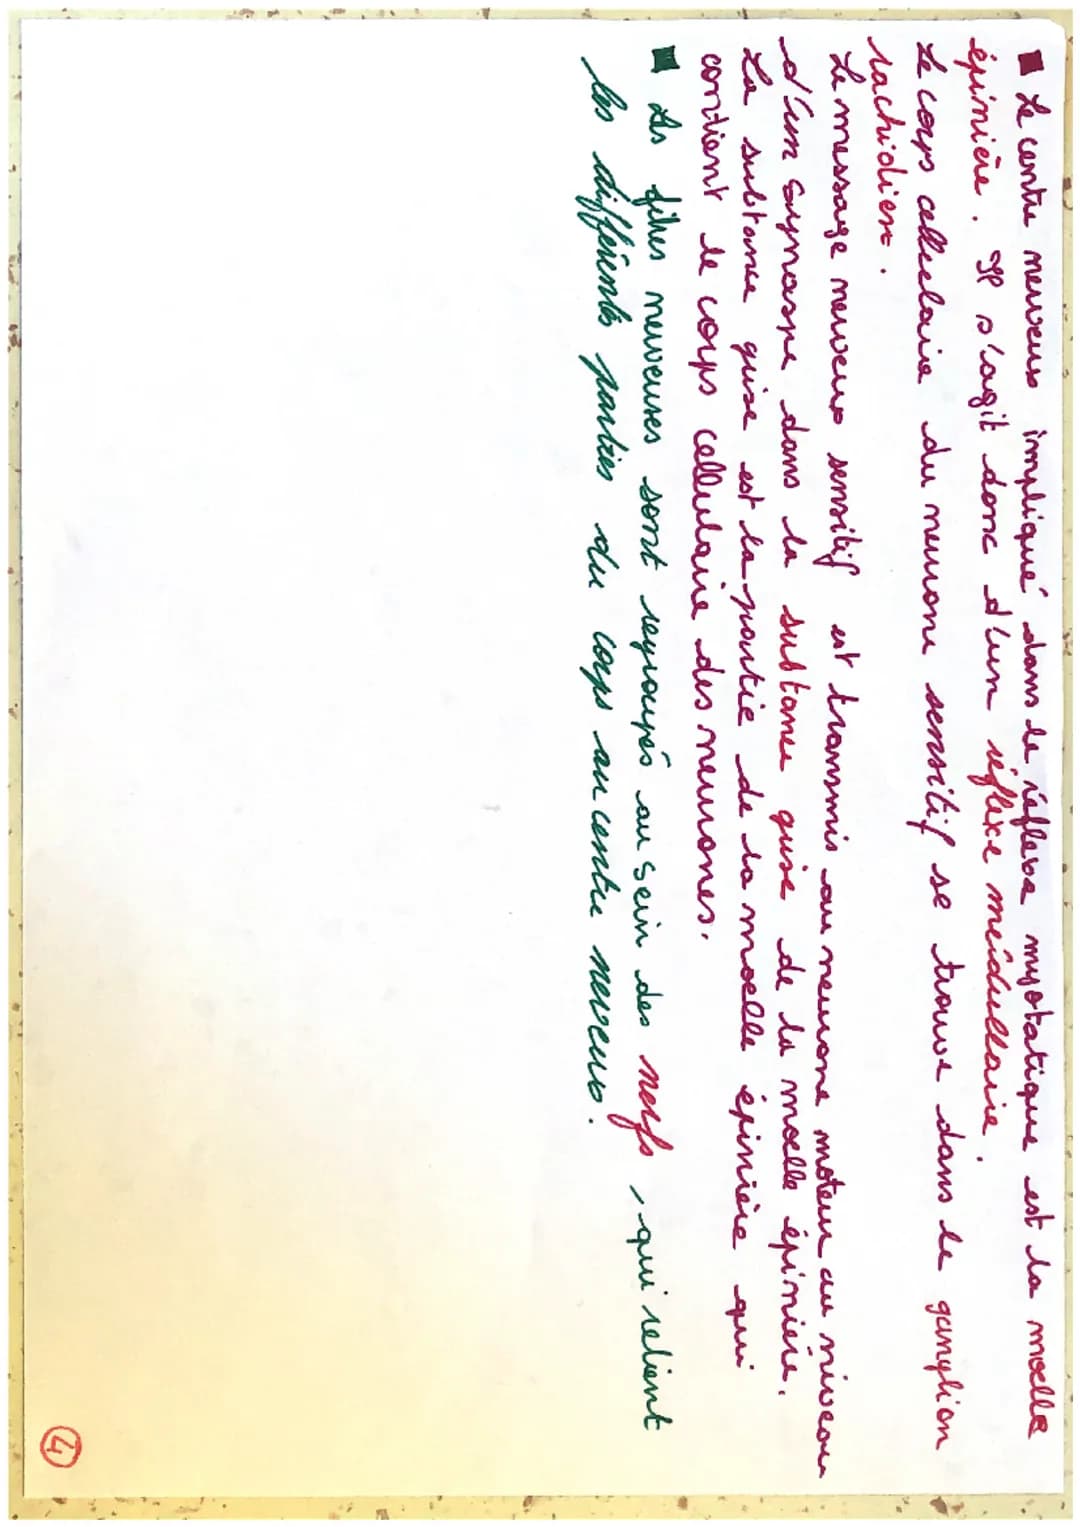 ■ Le centre nerveux impliqué dans le réflexe myotatique est la moelle
épinière. Il s'agit donc d'un réflexe médullaire.
Le corps cellulaire du neurone sensitif se trouve dans le ganglion
rachidien.
Le message nerveux sensitif est transmis au neurone moteur au niveau
d'un synapse dans la substance grise de la moelle épinière.
La substance grise est la partie de la moelle épinière qui
contient le corps cellulaire des neurones.
■ Les fibres nerveuses sont regroupés au sein des nerfs, qui relient
les différents parties du corps au centre nerveux.
4